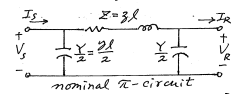 I_S Z = zl I_R
+ + 
V_S Y/2 = yl/2 Y/2 V_R
- -
nominal π-circuit